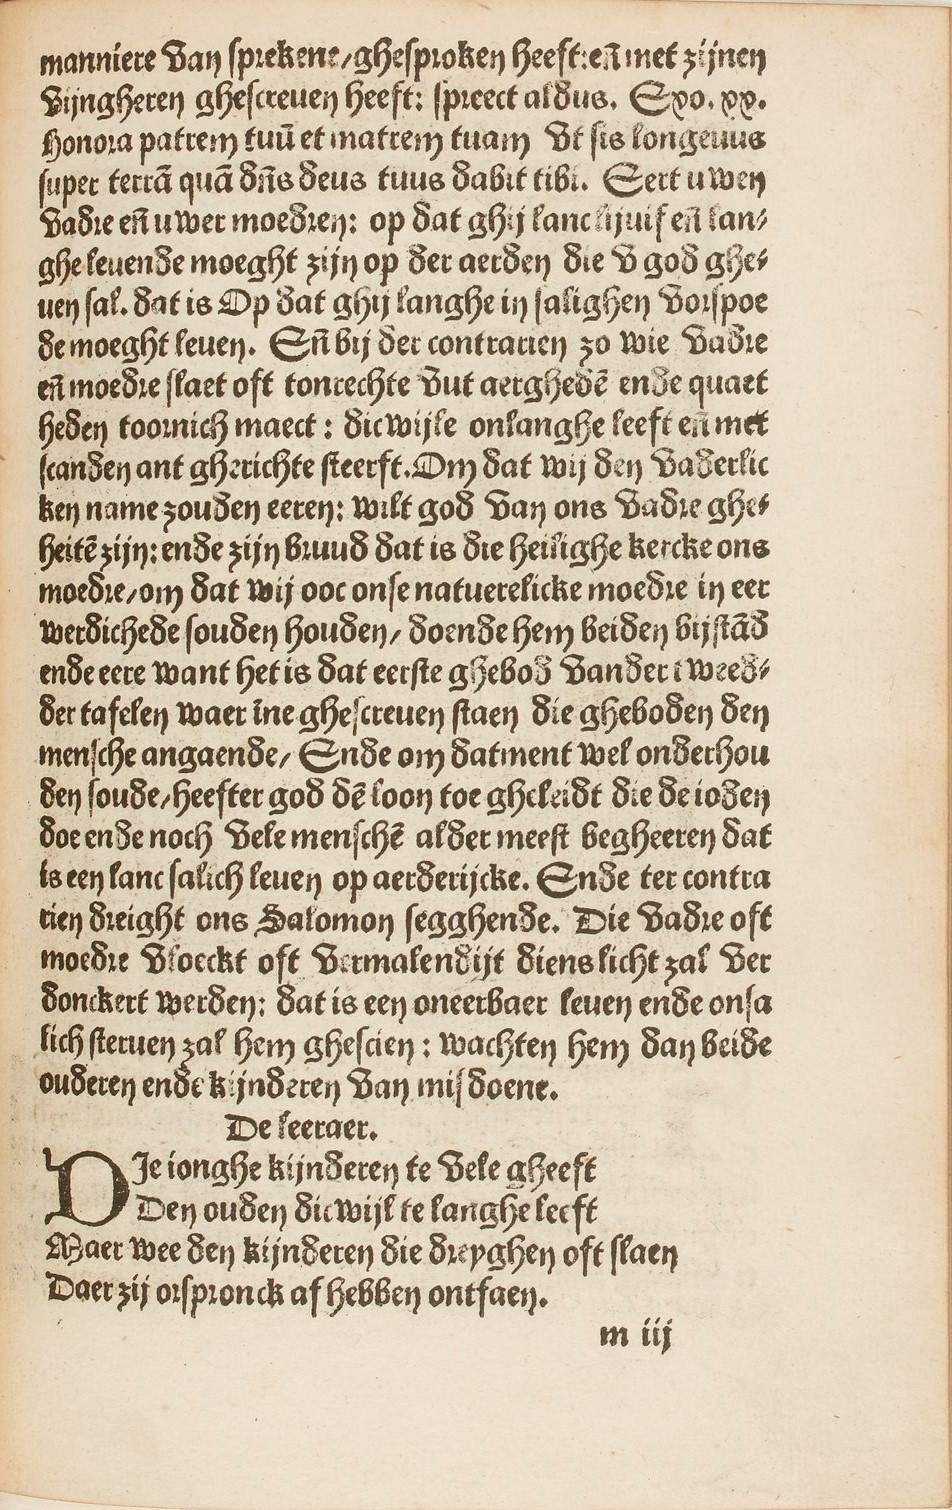 manniere van sprekene/ghesproken heeft:en̄ met zijnen
vijngheren ghescreven heeft: spreect aldus. Exo. xx.
Honora patrem tuū et matrem tuam vt sis longeuus
super terrā quā dn̄s deus tuus dabit tibi. Eert u wen
vadre en̄ u wer moedren: op dat ghij lanc lijuif en̄ lan⸗
ghe leuende moeght zijn op der aerden die v god ghe⸗
uen sal. dat is Op dat ghij langhe in salighen vorspoe
de moeght leuen. En̄ bij der contrarien zo wie vadre
en̄ moedre slaet oft tonrechte vut aerghedē ende quaet
heden toornich maect : dicwijle onlanghe leeft en̄ met
scanden ant gherichte steerft. Om dat wij den vaderlic
ken name zouden eeren: wilt god van ons vadre ghe⸗
heitē zijn: ende zijn bruud dat is die heilighe kercke ons
moedre/om dat wij ooc onse natuerelicke moedre in eer
werdichede souden houden/ doende hem beiden bijstād
ende eere want het is dat eerste ghebod vander tweed⸗
der tafelen waer īne ghescreuen staen die gheboden den
mensche angaende/ Ende om datment wel onderhou
den soude/heefter god dē loon toe gheleidt die de ioden
doe ende noch vele menschē alder meest begheeren dat
is een lanc salich leuen op aerderijcke. Ende ter contra
rien dreight ons Salomon segghende. Die vadre oft
moedre vloeckt oft vermalendijt diens licht zal ver
donckert werden: dat is een oneerbaer leuen ende onsa
lich steruen zal hem ghescien : wachten hem dan beide
ouderen ende kijnderen van misdoene.
De leeraer.
DJe ionghe kijnderen te vele gheeft
Den ouden dicwijl te langhe leeft
Maer wee den kijnderen die dreyghen oft slaen
Daer zij orspronck af hebben ontfaen.
m iij